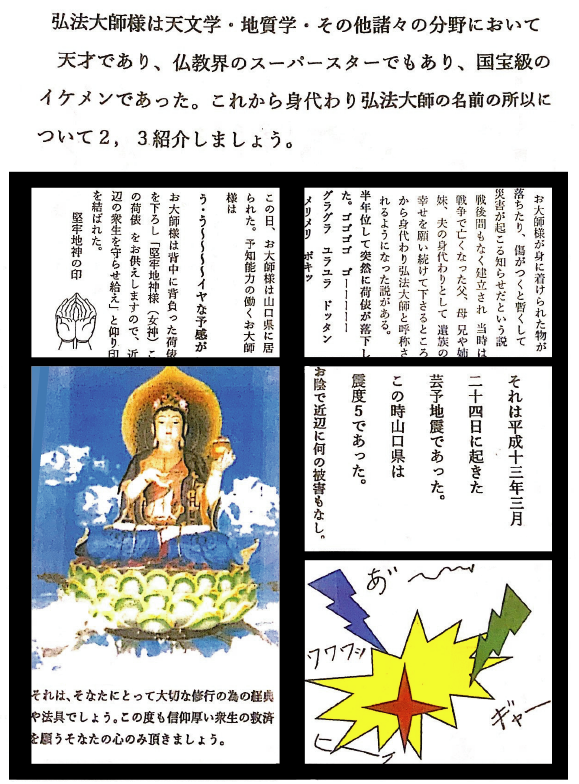 弘法大師様は天文学・地質学・その他諸々の分野において
天才であり、仏教界のスーパースターでもあり、国宝級の
イケメンであった。これから身代わり弘法大師の名前の所以に
ついて２，３紹介しましょう。
お大師様が身に着けられた物が
落ちたり、傷がつくと暫くして
災害が起こる知らせだという説
戦後間もなく建立され 当時は
戦争で亡くなった父、母 兄や姉
妹、夫の身代わりとして 遺族の
幸せを願い続けて下さるところ
から身代わり弘法大師と呼称さ
れるようになった説がある。
半年位して突然に荷俵が落下し
た。ゴゴゴゴ ゴーーーーー
グラグラ ユラユラ ドッタン
メリメリ ボキッ
この日、お大師様は山口県に居
られた。予知能力の働くお大師
様は
う・う～～～～～イヤな予感が
お大師様は背中に背負った荷俵
を下ろし「堅牢地神様（女神）こ
の荷俵 をお供えしますので、近
辺の衆生を守らせ給え」と仰り印
を結ばれた。
堅牢地神の印
それは平成十三年三月
二十四日に起きた
芸予地震であった。
この時山口県は
震度５であった。
お陰で近辺に何の被害もなし。
あ゛～
ワワワッ
ギャー
ヒー
それは、そなたにとって大切な修行の為の経典
や法具でしょう。この度も信仰厚い衆生の救済
を願うそなたの心のみ頂きましょう。